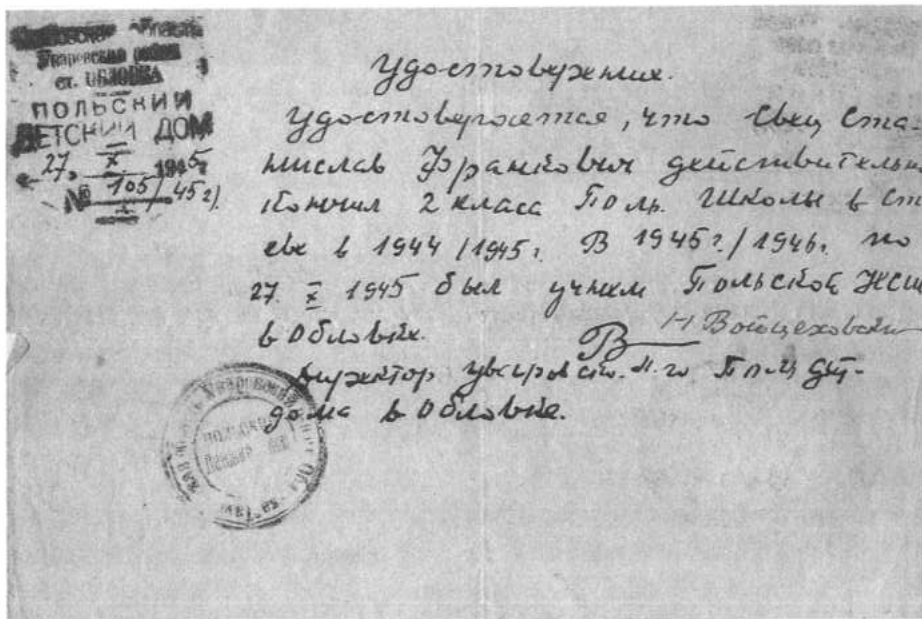 Уваровский район
ст. ОБЛОВКА
ПОЛЬСКИЙ
ДЕТСКИЙ ДОМ
27. X 1945 г
№ 105/45 г.
X
Удостоверение.
Удостоверяется, что Свец Ста-
нислав Франкович действительно
Кончил 2 класса Поль. Школы в
в 1944/1945 г. В 1945 г./1946. по
27. X 1945 был учнем Польской
в Обловке.
В Н Войцеховски
Директор Польск
дома в Обловке.
ПОЛЬСКИЙ